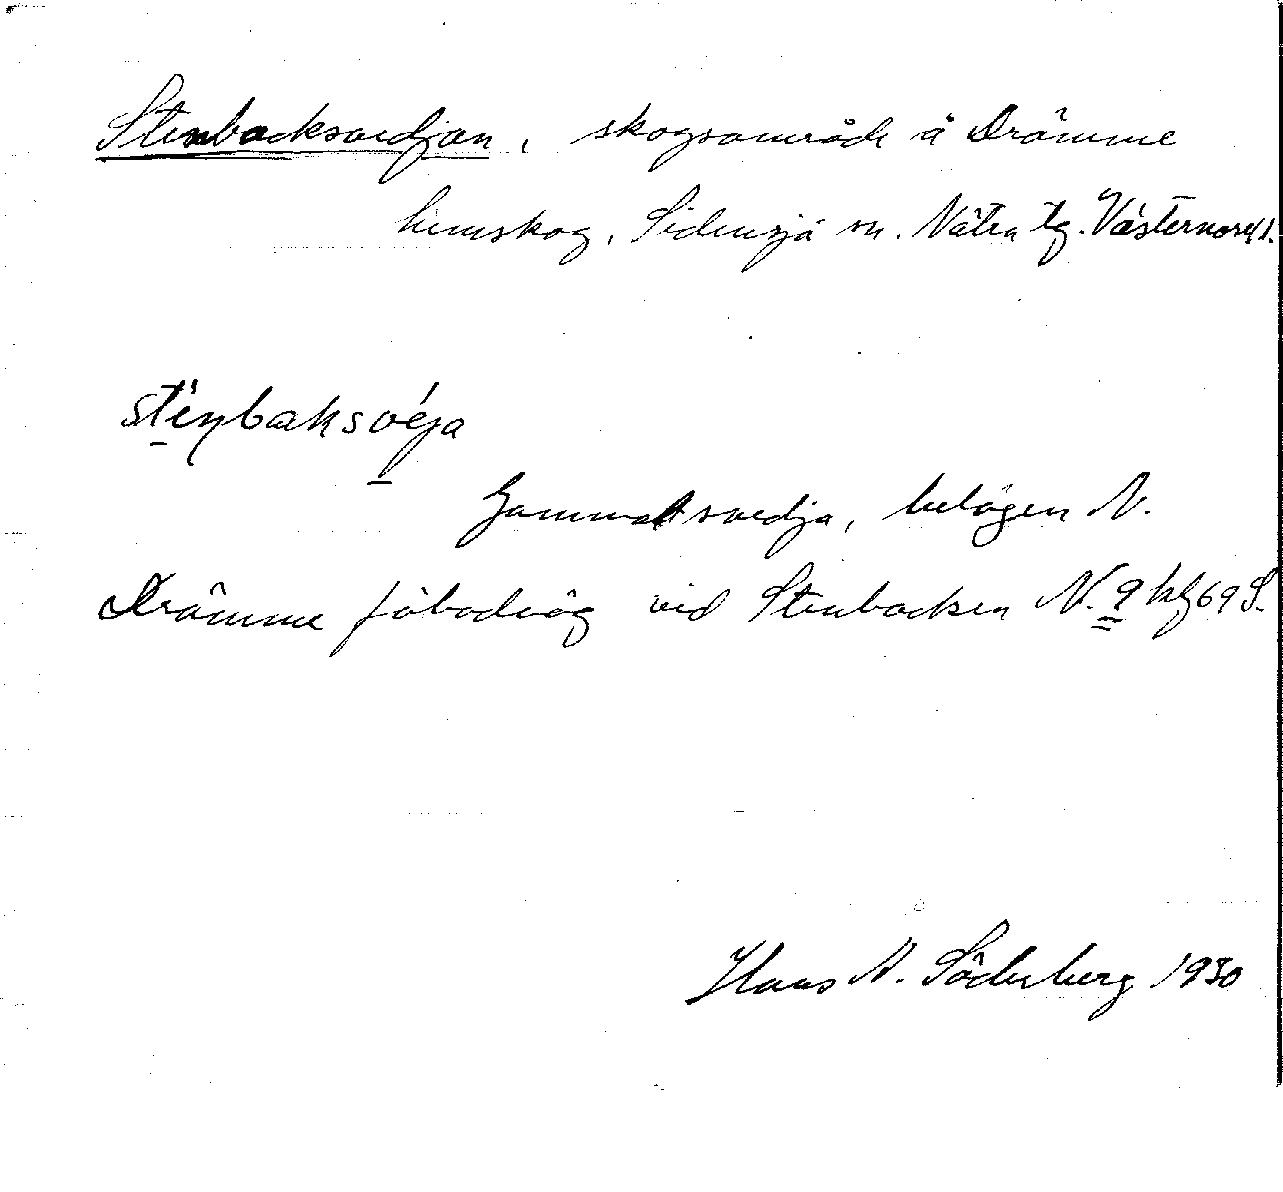 Stenbacksvedjan, skogsområde å Drömme
hemskog, Sidensjö sn. Nätra tg. Västernorrl l.
stènbaksvéja
Gammal svedja, belägen N.
Drömme fäbodväg vid Stenbacken N. 9 kbl 69 S.
Hans A. Söderberg 1930